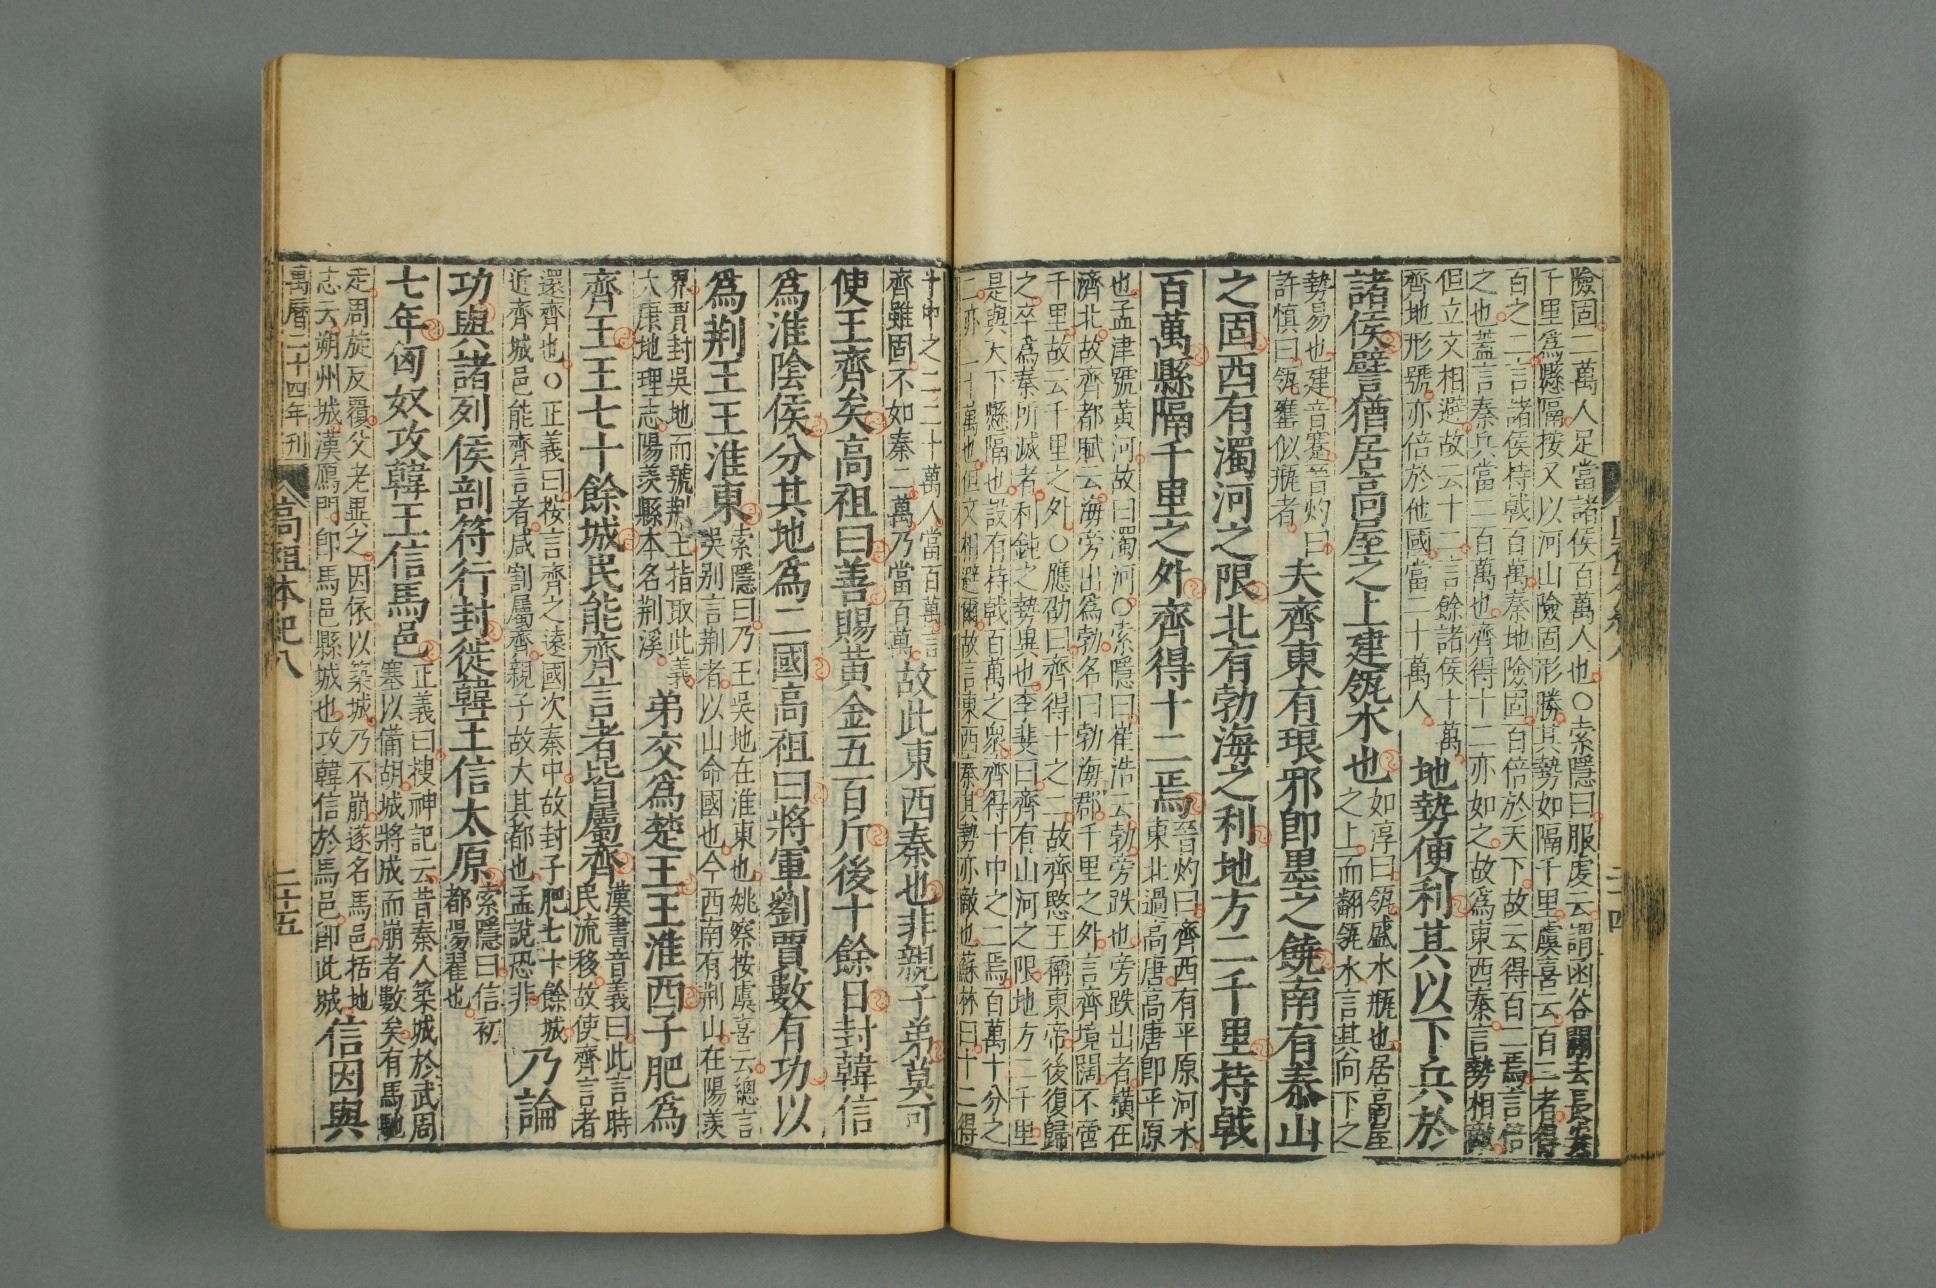 險固二萬人足當諸侯百萬人也○索隱曰服虔云謂函谷關去長安
千里爲縣隔按又以河山險固形勝其勢如隔千里虞喜云百二者得
百之二言諸侯持戟百萬秦地險固百倍於天下故云得百二焉言倍
之也蓋言秦兵當二百萬也齊得十二亦如之故爲東西秦言勢相敵
但立文相避故云十二言餘諸侯十萬
齊地形號亦倍於他國當二十萬人
地勢便利其以下兵於
諸侯譬猶居高屋之上建瓴水也
如淳曰瓴盛水瓶也居高屋
之上而翻瓴水言其向下之
勢易也建音蹇晉灼曰
許慎曰瓴罋似瓶者
夫齊東有琅邪卽墨之饒南有泰山
之固西有濁河之限北有勃海之利地方二千里持戟
百萬縣隔千里之外齊得十二焉
晉灼曰齊西有平原河水
東北過高唐高唐卽平原
也孟津號黃河故曰濁河○索隱曰崔浩云勃旁跌也旁跌出者橫在
濟北故齊都賦云海旁出爲勃名曰勃海郡千里之外言齊境闊不啻
千里故云千里之外○應劭曰齊得十之二故齊愍王稱東帝後復歸
之卒爲秦所滅者利鈍之勢異也李斐曰齊有山河之限地方二千里
是與天下懸隔也設有持戟百萬之衆齊得十中之二焉百萬十分之
二亦二十萬也但文相避爾故言東西秦其勢亦敵也蘇林曰十二得
十中之二二十萬人當百萬言
齊雖固不如秦二萬乃當百萬
故此東西秦也非親子弟莫可
使王齊矣高祖曰善賜黃金五百斤後十餘日封韓信
爲淮陰侯分其地爲二國高祖曰將軍劉賈數有功以
爲荆王王淮東
索隱曰乃王吳地在淮東也姚察按虞喜云總言
吳別言荆者以山命國也今西南有荆山在陽羨
界賈封吳地而號荆王指取此義
太康地理志陽羨縣本名荆溪
弟交爲楚王王淮西子肥爲
齊王王七十餘城民能齊言者皆屬齊
漢書音義曰此言時
民流移故使齊言者
還齊也○正義曰按言齊之遠國次秦中故封子肥七十餘城
近齊城邑能齊言者咸割屬齊親子故大其都也孟說恐非
乃論
功與諸列侯剖符行封徙韓王信太原
索隱曰信初
都陽翟也
七年匈奴攻韓王信馬邑
正義曰搜神記云昔秦人築城於武周
塞以備胡城將成而崩者數矣有馬馳
走周旋反覆父老異之因依以築城乃不崩遂名馬邑括地
志云朔州城漢鴈門卽馬邑縣城也攻韓信於馬邑卽此城
信因與
萬曆二十四年刊
高祖本紀八
二十五